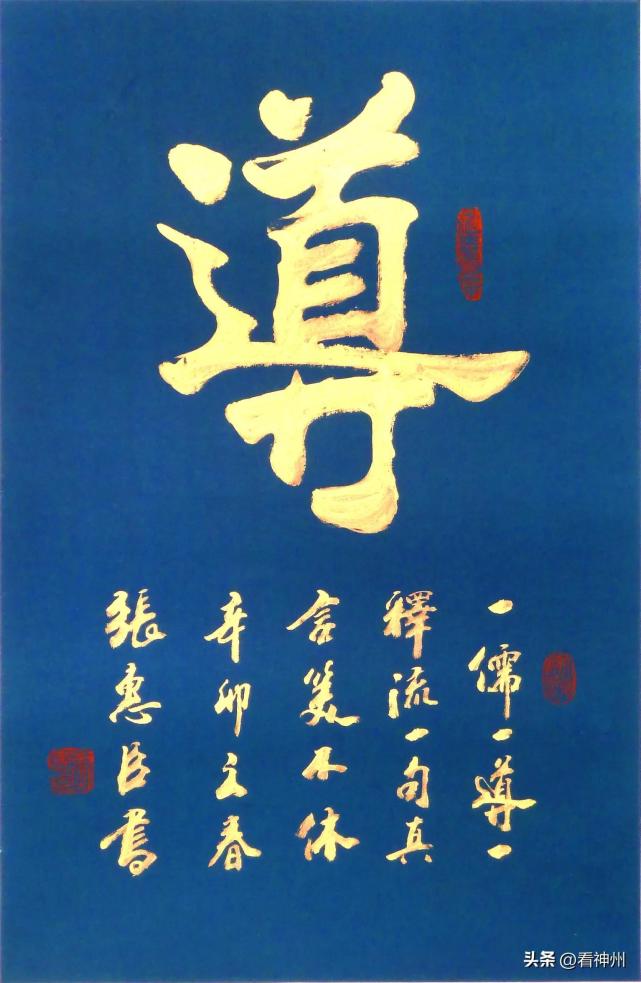 導
一儒一導一
釋流一句真
言美不休
辛卯之春
張惠臣書
头条 @看神州